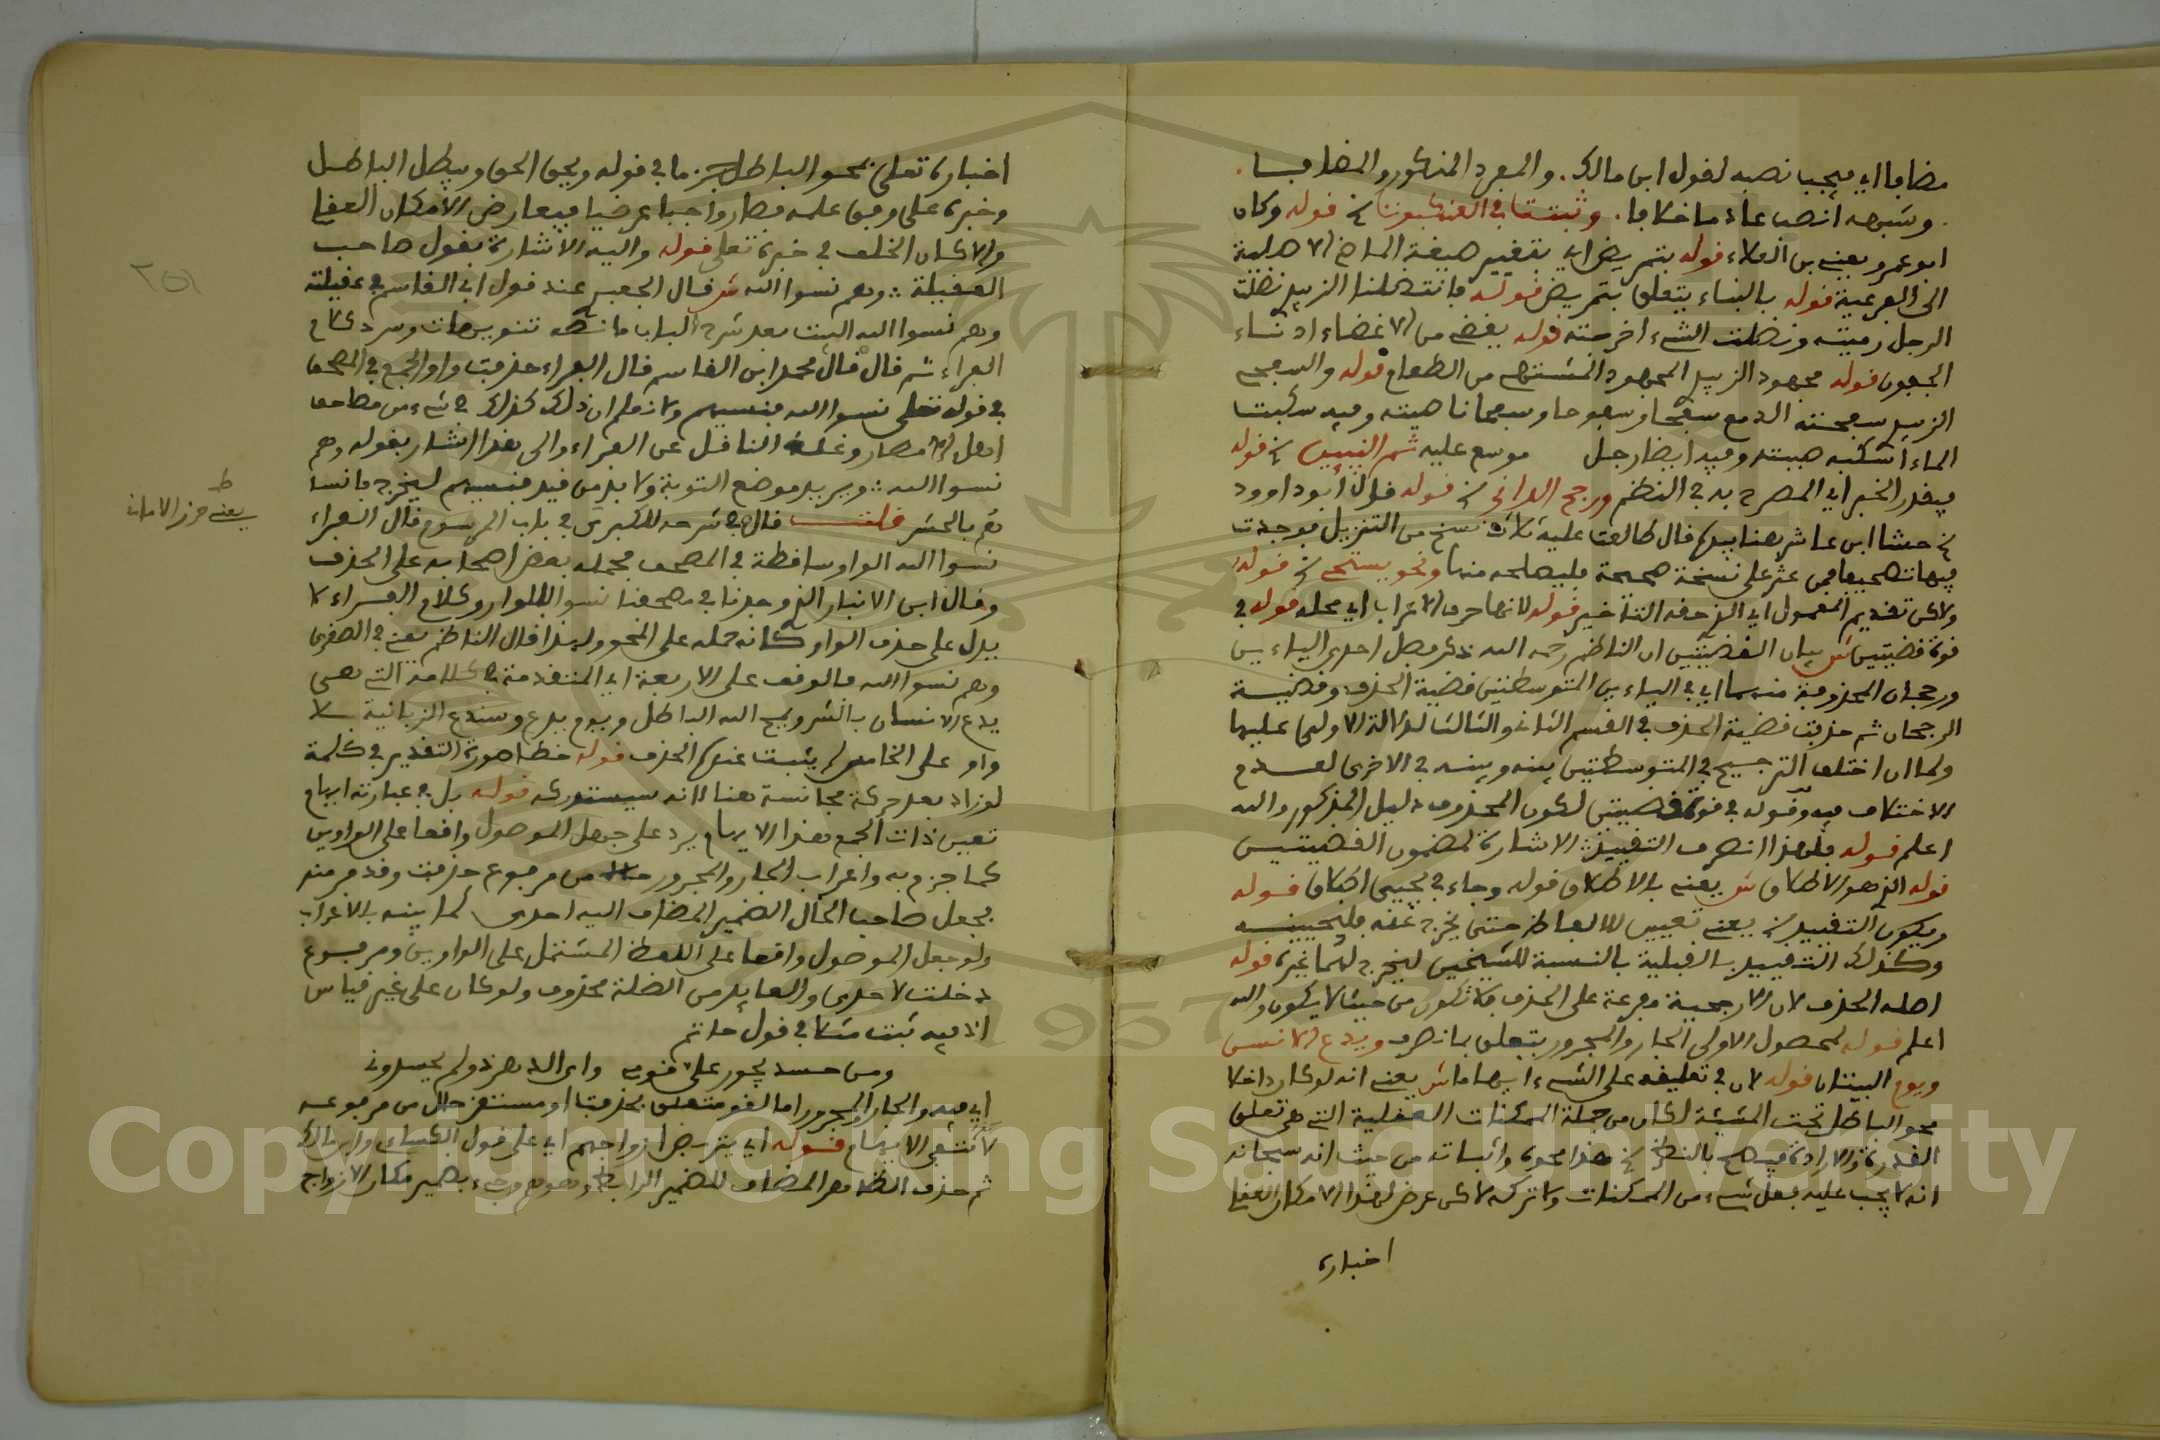 مضافا اي فيجب نصبه لقول ابن مالك. والمفرد المنكور والمضافا.
. وشبهه انصب عادما خلافا. وثبتتا في العنكبوت قوله وكان
ابو عمرو يعني بن العلاء قوله بتمريض اي بتغيير صيغة الماضي الاصلية
الى الفرعية قوله بالبناء يتعلق بتمريض قوله فانتصلنا الزبيد نصلت
الرجل رميته ونصلت الشيء اخرجته قوله بغضي من الاغضاء ادناء
الجفون قوله مجهود الزبيد المجهود المشتهى من الطعام قوله والسفح
الزبيد سفحته الدمع سفحا وسفوحا وسفحانا صببته وفيه سكبت
الماء اسكبه صببته وفيه ايضا رجل موسع عليه ثم النبيين قوله
فيقدر الخبر اي المصرح به في النظم ورجح الداني قوله قال ابو داوود
حشا ابن عاشر هنا قال طالعت عليه ثلاث نسخ من التنزيل فوجدت
فيها تصحيفا فمن عثر على نسخة صحيحة فليصلحه منها ونحو يستحي قوله
ولاكن تقديم المعمول اي الذي حقه التاخير قوله لانها حرف الاعراب اي محله قوله في
قوة قضيتين ش بيان القضيتين ان الناظم رحمه الله ذكر فصل احدى الياءين
ورجحان المحذوفة منهما اي في الياءين المتوسطتين قضية الحذف وقضية
الرجحان ثم حذفت قضية الحذف في القسم الثاني والثالث لدلالة الاولى عليها
ولما ان اختلف الترجيح في المتوسطتين بينه وبينه في الاخرى لعدم
الاختلاف فيه وقوله في قوة قضيتين لكون المحذوف دليل المذكور والله
اعلم قوله فلهذا انصرف التقييد الاشارة لمضمون القضيتين
قوله الذي هو الاطلاق ش يعني بالاطلاق قوله وجاء في يحيى اطلاق قوله
ويكون التقييد يعني تعيين الالفاظ حتى يخرج عنه فليحيينه
وكذلك التقييد بالقبلية بالنسبة للشيخين ليخرج لهما غيره قوله
اصله الحذف لان الارجحية مفرعة على الحذف فلا تكون من حيث لا يكون والله
اعلم قوله لمحصول الاولى الجار والمجرور يتعلق بانصرف ويدع الانسن
ويوم البيتان قوله لان في تعليقه على الشيء ابهاما ش يعني انه لو كان داخلا
محو الباطل تحت المشيئة لكان من جملة الممكنات العقلية التي هي تعلق
القدرة والارادة فيصح بالنظر هذا محوه واثباته من حيث انه سبحانه
انه لا يجب عليه فعل شيء من الممكنات ولا تركه لاكن عرض لهذا الامكان العقلي
اخباره
اخباره تعلى بمحو الباطل جزما في قوله ويحق الحق ويبطل الباطل
وخبره على وفق علمه فصار واجبا عرضيا فيعارض الامكان العقلي
والا كان الخلف في خبره تعلى قوله واليه الاشارة بقول صاحب
العقيلة :. وهم نسوا الله ش قال الجعبري عند قول ابي القاسم في عقيلته
وهم نسوا الله البيت بعد شرح الباب ما نصه تنويهات وسرد كلام
الفراء ثم قال قال محمد ابن القاسم قال الفراء حذفت واو الجمع في المصحف
في قوله تعلى نسوا الله فنسيهم ولا نعلم ان ذلك كذلك في شيء من مصاحف
اهل الامصار وغلط الناقل عن الفراء والى هذا اشار بقوله وهم
نسوا الله :. ويريد موضع التوبة ولا بد من قيد فنسيهم ليخرج فانسا
هم بالحشر قلت قال في شرحه للكبرى في باب المرسوم قال الفراء
نسوا الله الواو ساقطة في المصحف فحمله بعض اصحابه على الحذف
وقال ابن الانباري الذي وجدنا في مصحفنا نسوا بالواو وكلام الفراء لا
يدل على حذف الواو كانه حمله على المحو ولهذا قال الناظم يعني في الصغرى
وهم نسوا الله فالوقف على الاربعة اي المتقدمة في كلامه التي هي
يدع الانسان بالشر ويمح الله الباطل ويوم يدع وسندع الزبانية بلا
واو على الخامس لم يثبت عندي الحذف قوله خطا صورة التقدير في كلمة
لو زاد بعد حركة مجانسة هنا لانه سيستدركه قوله بل في عبارته ابهام
تعيين ذات الجمع هذا الابهام يرد على جعل الموصول واقعا على الواوين
كما جزم به واعراب الجار والمجرور حالا من مرفوع حذفت وقد فر منه
بجعل صاحب الحال الضمير المضاف اليه احدى لما بينه بالاعراب
ولو جعل الموصول واقعا على اللفظ المشتمل على الواوين ومرفوع
دخلت لاحدى والعايد من الصلة محذوف ولو كان على غير قياس
الا فيه ثبت مثلا في قول حاتم
ومن حسد يجور علي قومي واي الدهر ذو لم يحسدوني
اي فيه والجار والمجرور اما لغو متعلق بحذفت او مستقر حال من مرفوعه
لا نتفى الابهام قوله اي يتربص ازواجهم اي على قول الكساي وابن مالك
ثم حذف الظاهر المضاف للضمير الرابط وعوض وجيء بضمير مكان الازواج
يعني حرز الاماني